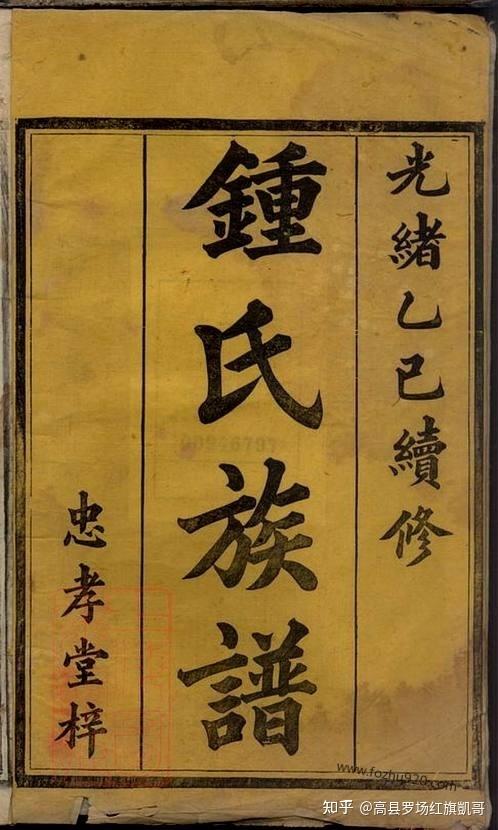 光緒乙巳續修
鍾氏族譜
忠孝堂梓
00946797
www.fozhu920.com
知乎 @高县罗场红旗凯哥